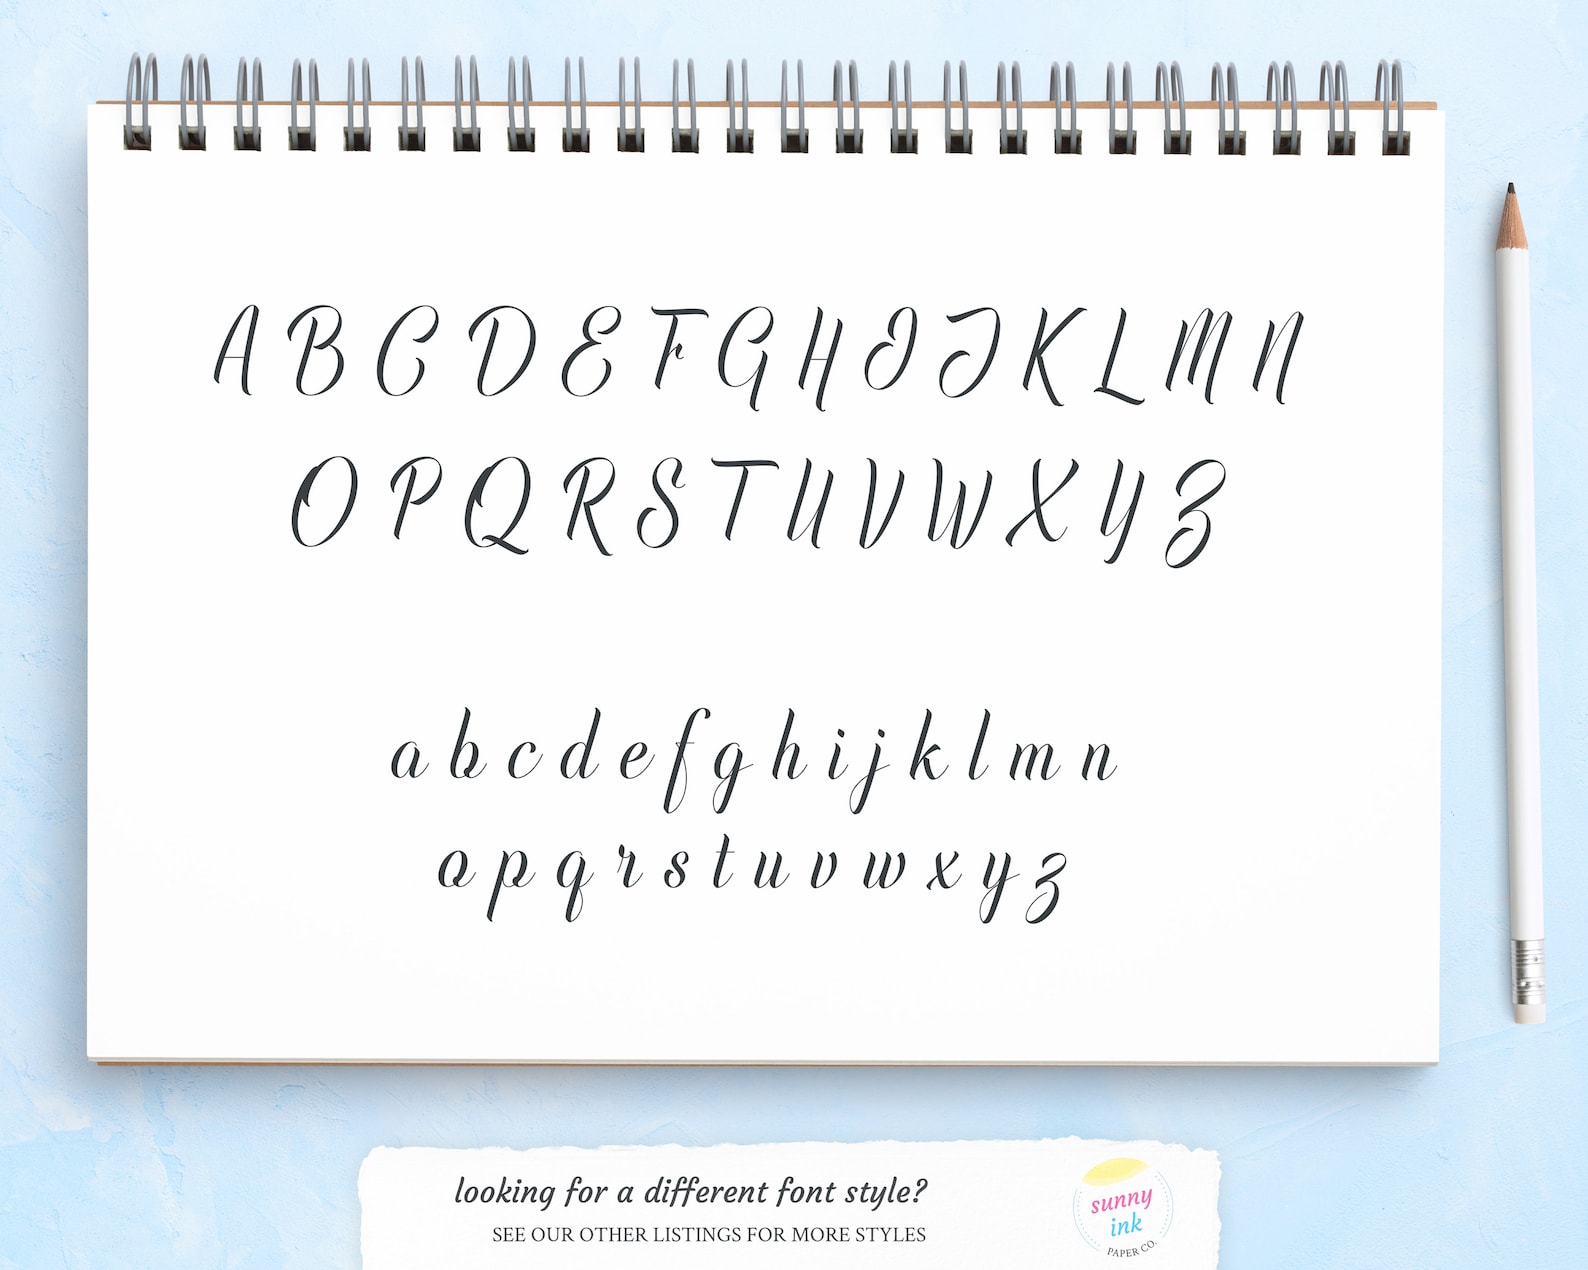 A B C D E F G H I J K L M N
O P Q R S T U V W X Y Z
a b c d e f g h i j k l m n
o p q r s t u v w x y z
looking for a different font style?
SEE OUR OTHER LISTINGS FOR MORE STYLES
sunny
ink
PAPER CO.